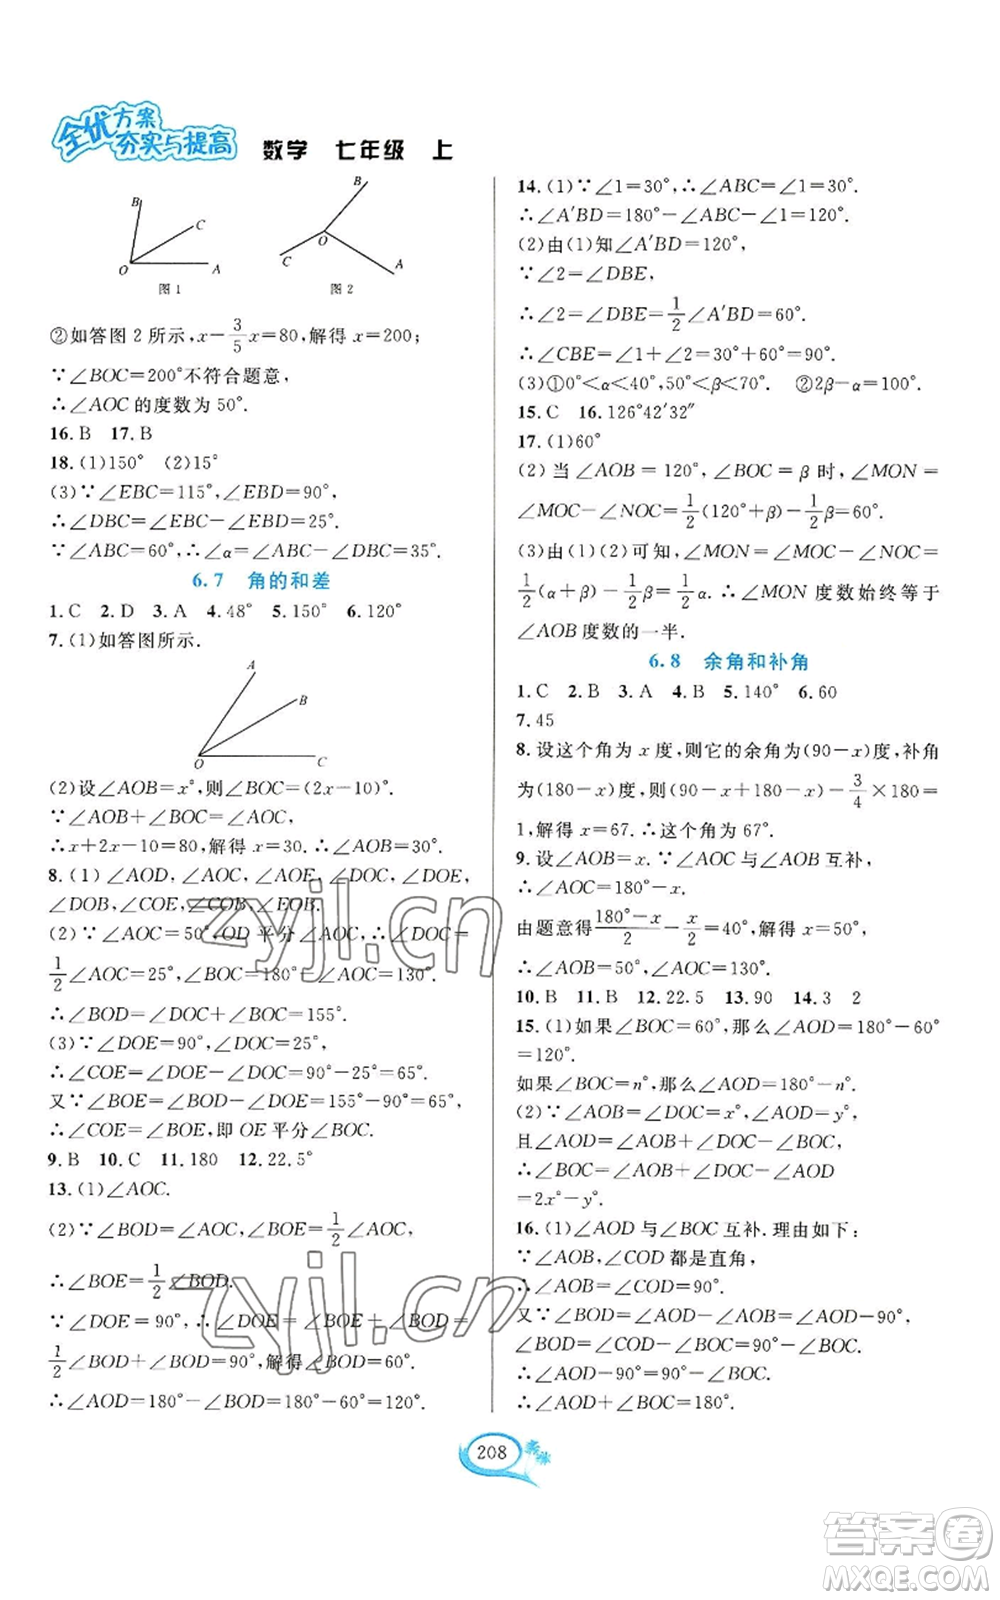 全优方案
夯实与提高 数学 七年级 上
B
C
O
A
图1
B
O
C
A
图2
②如答图2所示,x-3/5x=80,解得x=200;
∵∠BOC=200°不符合题意,
∴∠AOC的度数为50°.
16.B 17.B
18.(1)150° (2)15°
(3)∵∠EBC=115°,∠EBD=90°,
∴∠DBC=∠EBC-∠EBD=25°.
∵∠ABC=60°,∴∠α=∠ABC-∠DBC=35°.
6.7 角的和差
1.C 2.D 3.A 4.48° 5.150° 6.120°
7.(1)如答图所示.
A
B
O
C
(2)设∠AOB=x°,则∠BOC=(2x-10)°.
∵∠AOB+∠BOC=∠AOC,
∴x+2x-10=80,解得x=30.∴∠AOB=30°.
8.(1)∠AOD,∠AOC,∠AOE,∠DOC,∠DOE,
∠DOB,∠COE,∠COB,∠EOB.
(2)∵∠AOC=50°,OD平分∠AOC,∴∠DOC=
1/2∠AOC=25°,∠BOC=180°-∠AOC=130°.
∴∠BOD=∠BOC+∠DOC=155°.
(3)∵∠DOE=90°,∠DOC=25°,
∴∠COE=∠DOE-∠DOC=90°-25°=65°.
又∵∠BOE=∠BOD-∠DOE=155°-90°=65°,
∴∠COE=∠BOE,即OE平分∠BOC.
9.B 10.C 11.180 12.22.5°
13.(1)∠AOC.
(2)∵∠BOD=∠AOC,∠BOE=1/2∠AOC,
∴∠BOE=1/2∠BOD.
∵∠DOE=90°,∴∠DOE=∠BOE+∠BOD=
1/2∠BOD+∠BOD=90°,解得∠BOD=60°.
∴∠AOD=180°-∠BOD=180°-60°=120°.
14.(1)∵∠1=30°,∴∠ABC=∠1=30°.
∴∠A′BD=180°-∠ABC-∠1=120°.
(2)由(1)知∠A′BD=120°,
∵∠2=∠DBE,
∴∠2=∠DBE=1/2∠A′BD=60°.
∴∠CBE=∠1+∠2=30°+60°=90°.
(3)①0°<α<40°,50°<β<70°. ②2β-α=100°.
15.C 16.126°42′32″
17.(1)60°
(2)当∠AOB=120°,∠BOC=β时,∠MON=
∠MOC-∠NOC=1/2(120°+β)-1/2β=60°.
(3)由(1)(2)可知,∠MON=∠MOC-∠NOC=
1/2(α+β)-1/2β=1/2α.∴∠MON度数始终等于
∠AOB度数的一半.
6.8 余角和补角
1.C 2.B 3.A 4.B 5.140° 6.60
7.45
8.设这个角为x度,则它的余角为(90-x)度,补角
为(180-x)度,则(90-x+180-x)-3/4×180=
1,解得x=67.∴这个角为67°.
9.设∠AOB=x.∵∠AOC与∠AOB互补,
∴∠AOC=180°-x.
由题意得(180°-x)/2-x/2=40°,解得x=50°,
∴∠AOB=50°,∠AOC=130°.
10.B 11.B 12.22.5 13.90 14.3 2
15.(1)如果∠BOC=60°,那么∠AOD=180°-60°
=120°.
如果∠BOC=n°,那么∠AOD=180°-n°.
(2)∵∠AOB=∠DOC=x°,∠AOD=y°,
且∠AOD=∠AOB+∠DOC-∠BOC,
∴∠BOC=∠AOB+∠DOC-∠AOD
=2x°-y°.
16.(1)∠AOD与∠BOC互补.理由如下:
∵∠AOB,∠COD都是直角,
∴∠AOB=∠COD=90°.
又∵∠BOD=∠AOD-∠AOB=∠AOD-90°,
∠BOD=∠COD-∠BOC=90°-∠BOC,
∴∠AOD-90°=90°-∠BOC.
∴∠AOD+∠BOC=180°.
208
zyjl.cn
zyjl.cn
答案卷
MXQE.COM